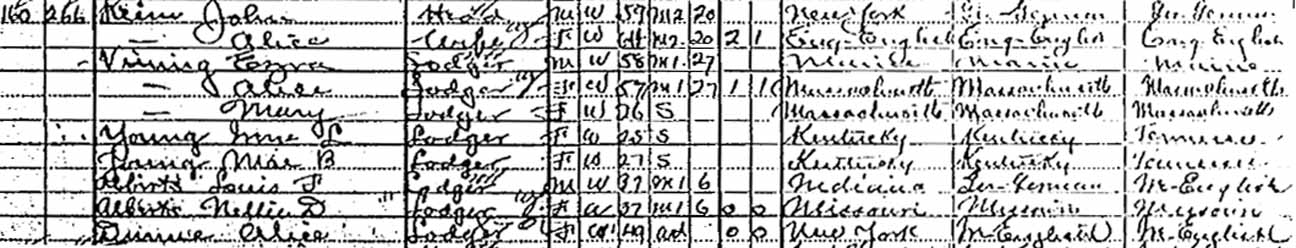 160 266 John Head M W 59 M2 20 New York Ger-German Ger-German
— Alice Wife F W 44 M2 20 2 1 Eng-English Eng-English Eng-English
Vining Ezra Lodger M W 58 M1 27 Maine Maine Maine
— Alice Lodger F W 57 M1 27 1 1 Massachusetts Massachusetts Massachusetts
— Mary Lodger F W 26 S Massachusetts Massachusetts Massachusetts
Young L Lodger F W 25 S Kentucky Kentucky Tennessee
Young Mae B Lodger F W 27 S Kentucky Kentucky Tennessee
Louis F Lodger M W 37 M1 6 Indiana Ger-German
Nellie D Lodger F W 37 M1 6 0 0 Missouri Missouri Missouri
Alice Lodger F W 49 0 0 New York